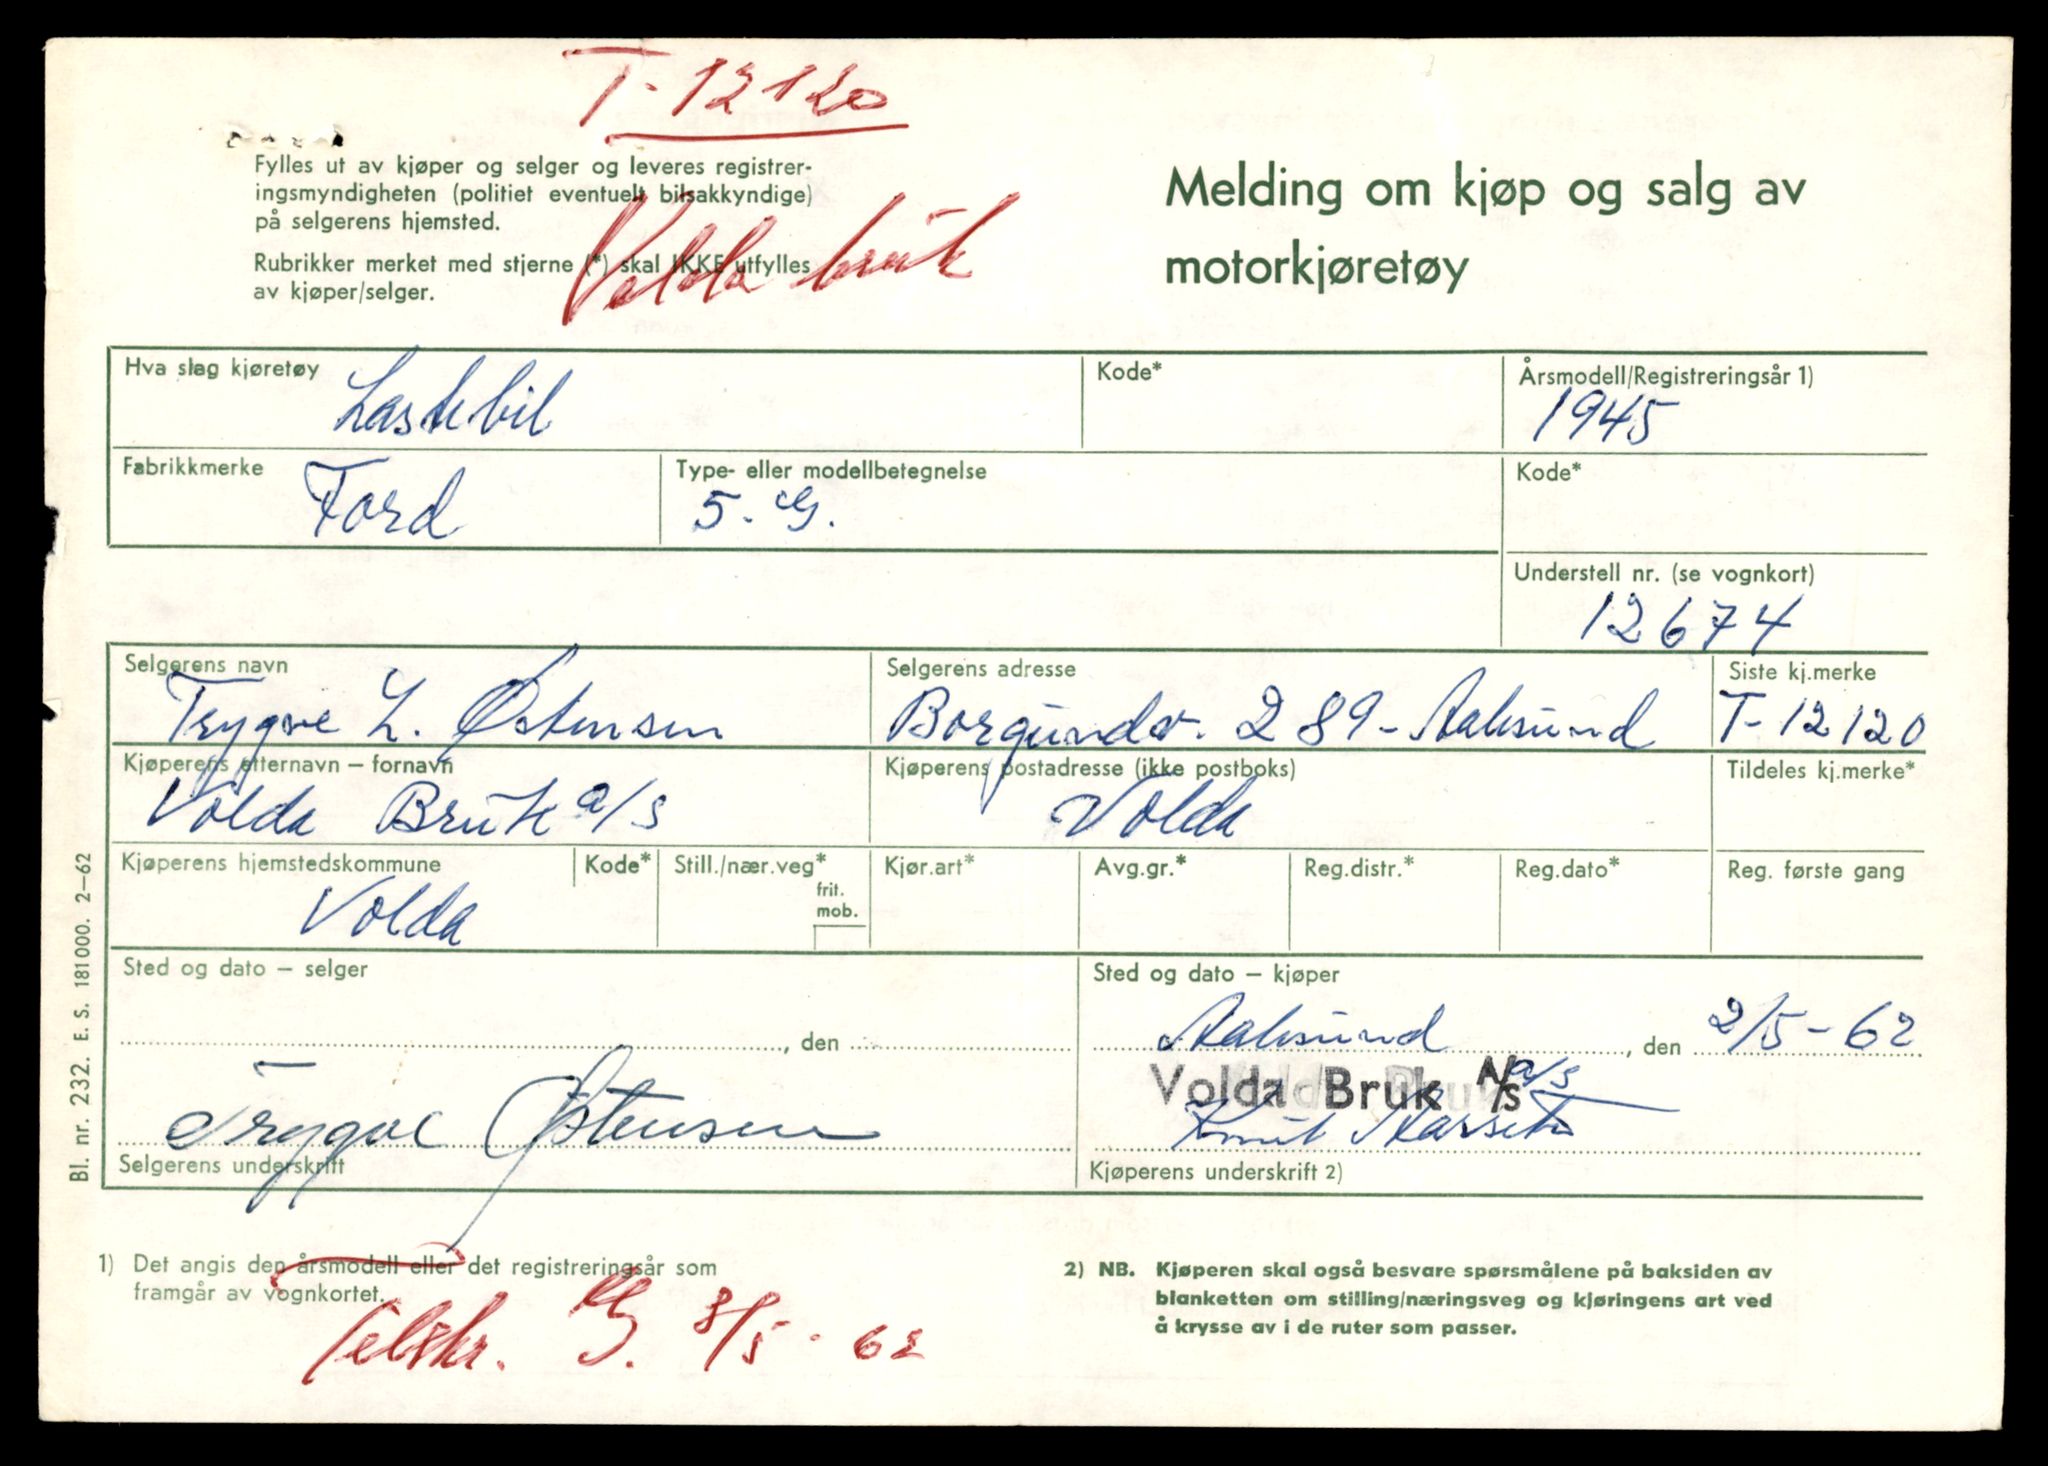 T-12120
Fylles ut av kjøper og selger og leveres registrer-
ingsmyndigheten (politiet eventuelt bilsakkyndige)
på selgerens hjemsted.
Rubrikker merket med stjerne (*) skal IKKE utfylles
av kjøper/selger.
Volda bruk
Melding om kjøp og salg av
motorkjøretøy
Hva slag kjøretøy
Lastebil
Kode*
Årsmodell/Registreringsår 1)
1945
Fabrikkmerke
Ford
Type- eller modellbetegnelse
5. G.
Kode*
Understell nr. (se vognkort)
12674
Selgerens navn
Trygve L. Østensen
Selgerens adresse
Borgundv. 289 - Aalesund
Siste kj.merke
T-12120
Kjøperens etternavn – fornavn
Volda Bruk a/s
Kjøperens postadresse (ikke postboks)
Volda
Tildeles kj.merke*
Kjøperens hjemstedskommune
Volda
Kode*
Still./nær.veg*
frit.
mob.
Kjør.art*
Avg.gr.*
Reg.distr.*
Reg.dato*
Reg. første gang
Sted og dato – selger
, den
Trygve Østensen
Selgerens underskrift
Sted og dato – kjøper
Aalesund, den 2/5-62
Volda Bruk A/S a/s
Knut
Kjøperens underskrift 2)
1) Det angis den årsmodell eller det registreringsår som
framgår av vognkortet.
2) NB. Kjøperen skal også besvare spørsmålene på baksiden av
blanketten om stilling/næringsveg og kjøringens art ved
å krysse av i de ruter som passer.
8/5-62
Bl. nr. 232. E. S. 181000. 2–62